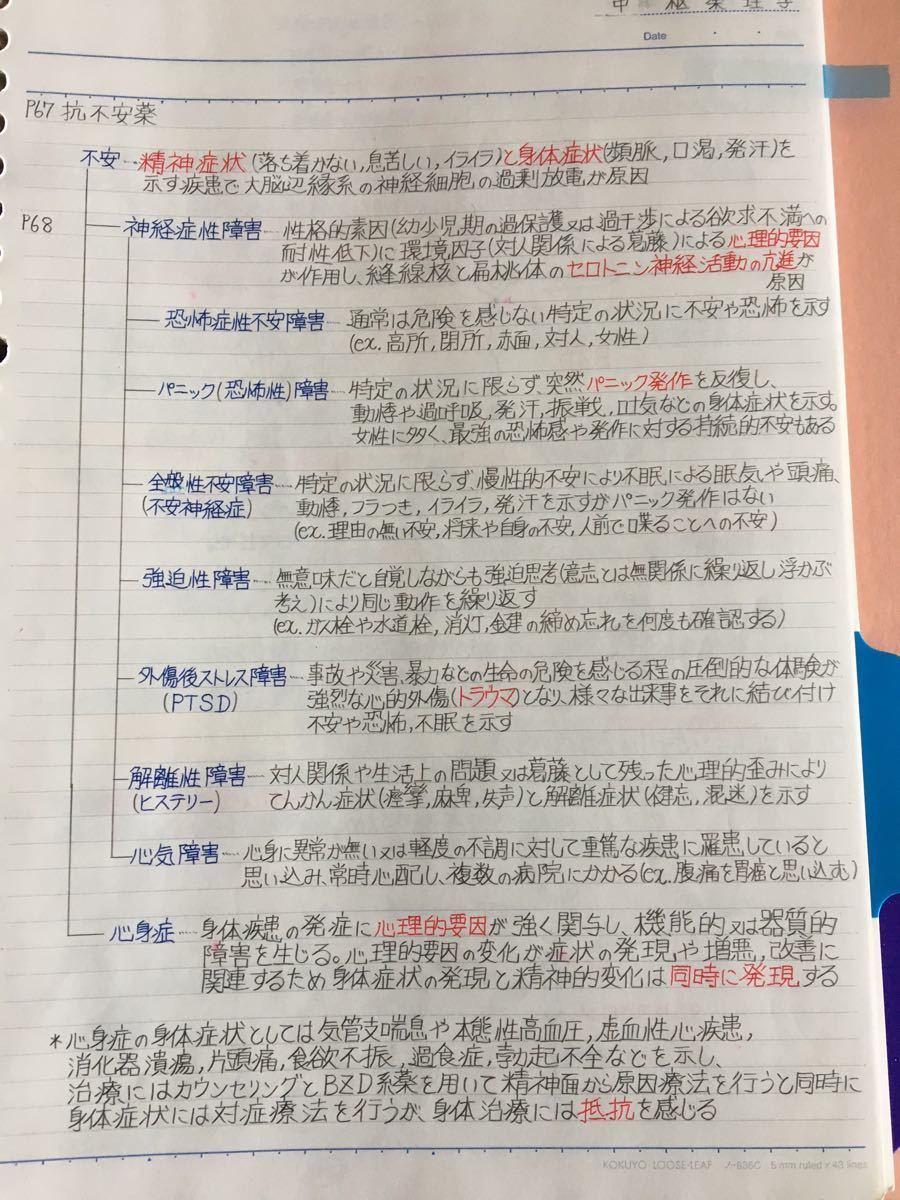 中枢薬理学
Date
P67 抗不安薬
不安…精神症状(落ち着かない,息苦しい,イライラ)と身体症状(頻脈,口渇,発汗)を
示す疾患で大脳辺縁系の神経細胞の過剰放電が原因
P68
神経症性障害…性格的素因(幼少児期の過保護又は過干渉による欲求不満への
耐性低下)に環境因子(対人関係による葛藤)による心理的要因
が作用し、縫線核と扁桃体のセロトニン神経活動の亢進が
原因
恐怖症性不安障害…通常は危険を感じない特定の状況に不安や恐怖を示す
(ex.高所,閉所,赤面,対人,女性)
パニック(恐怖性)障害…特定の状況に限らず、突然パニック発作を反復し、
動悸や過呼吸,発汗,振戦,吐気などの身体症状を示す。
女性に多く、最強の恐怖感や発作に対する持続的不安もある
全般性不安障害…特定の状況に限らず、慢性的不安により不眠による眠気や頭痛、
(不安神経症) 動悸,フラつき,イライラ,発汗を示すがパニック発作はない
(ex.理由の無い不安,将来や自身の不安,人前で喋ることへの不安)
強迫性障害…無意味だと自覚しながらも強迫思考(意志とは無関係に繰り返し浮かぶ
考え)により同じ動作を繰り返す
(ex.ガス栓や水道栓,消灯,鍵の締め忘れを何度も確認する)
外傷後ストレス障害…事故や災害、暴力などの生命の危険を感じる程の圧倒的な体験が
(PTSD) 強烈な心的外傷(トラウマ)となり、様々な出来事をそれに結び付け
不安や恐怖,不眠を示す
解離性障害…対人関係や生活上の問題又は葛藤として残った心理的歪みにより
(ヒステリー) てんかん症状(痙攣,麻痺,失声)と解離症状(健忘,混迷)を示す
心気障害…心身に異常が無い又は軽度の不調に対して重篤な疾患に罹患していると
思い込み、常時心配し、複数の病院にかかる(ex.腹痛を胃癌と思い込む)
心身症…身体疾患の発症に心理的要因が強く関与し、機能的又は器質的
障害を生じる。心理的要因の変化が症状の発現や増悪,改善に
関連するため身体症状の発現と精神的変化は同時に発現する
*心身症の身体症状としては気管支喘息や本態性高血圧,虚血性心疾患,
消化器潰瘍,片頭痛,食欲不振,過食症,勃起不全などを示し、
治療にはカウンセリングとBZD系薬を用いて精神面から原因療法を行うと同時に
身体症状には対症療法を行うが、身体治療には抵抗を感じる
KOKUYO LOOSE-LEAF ノ-836C 5 mm ruled × 43 lines